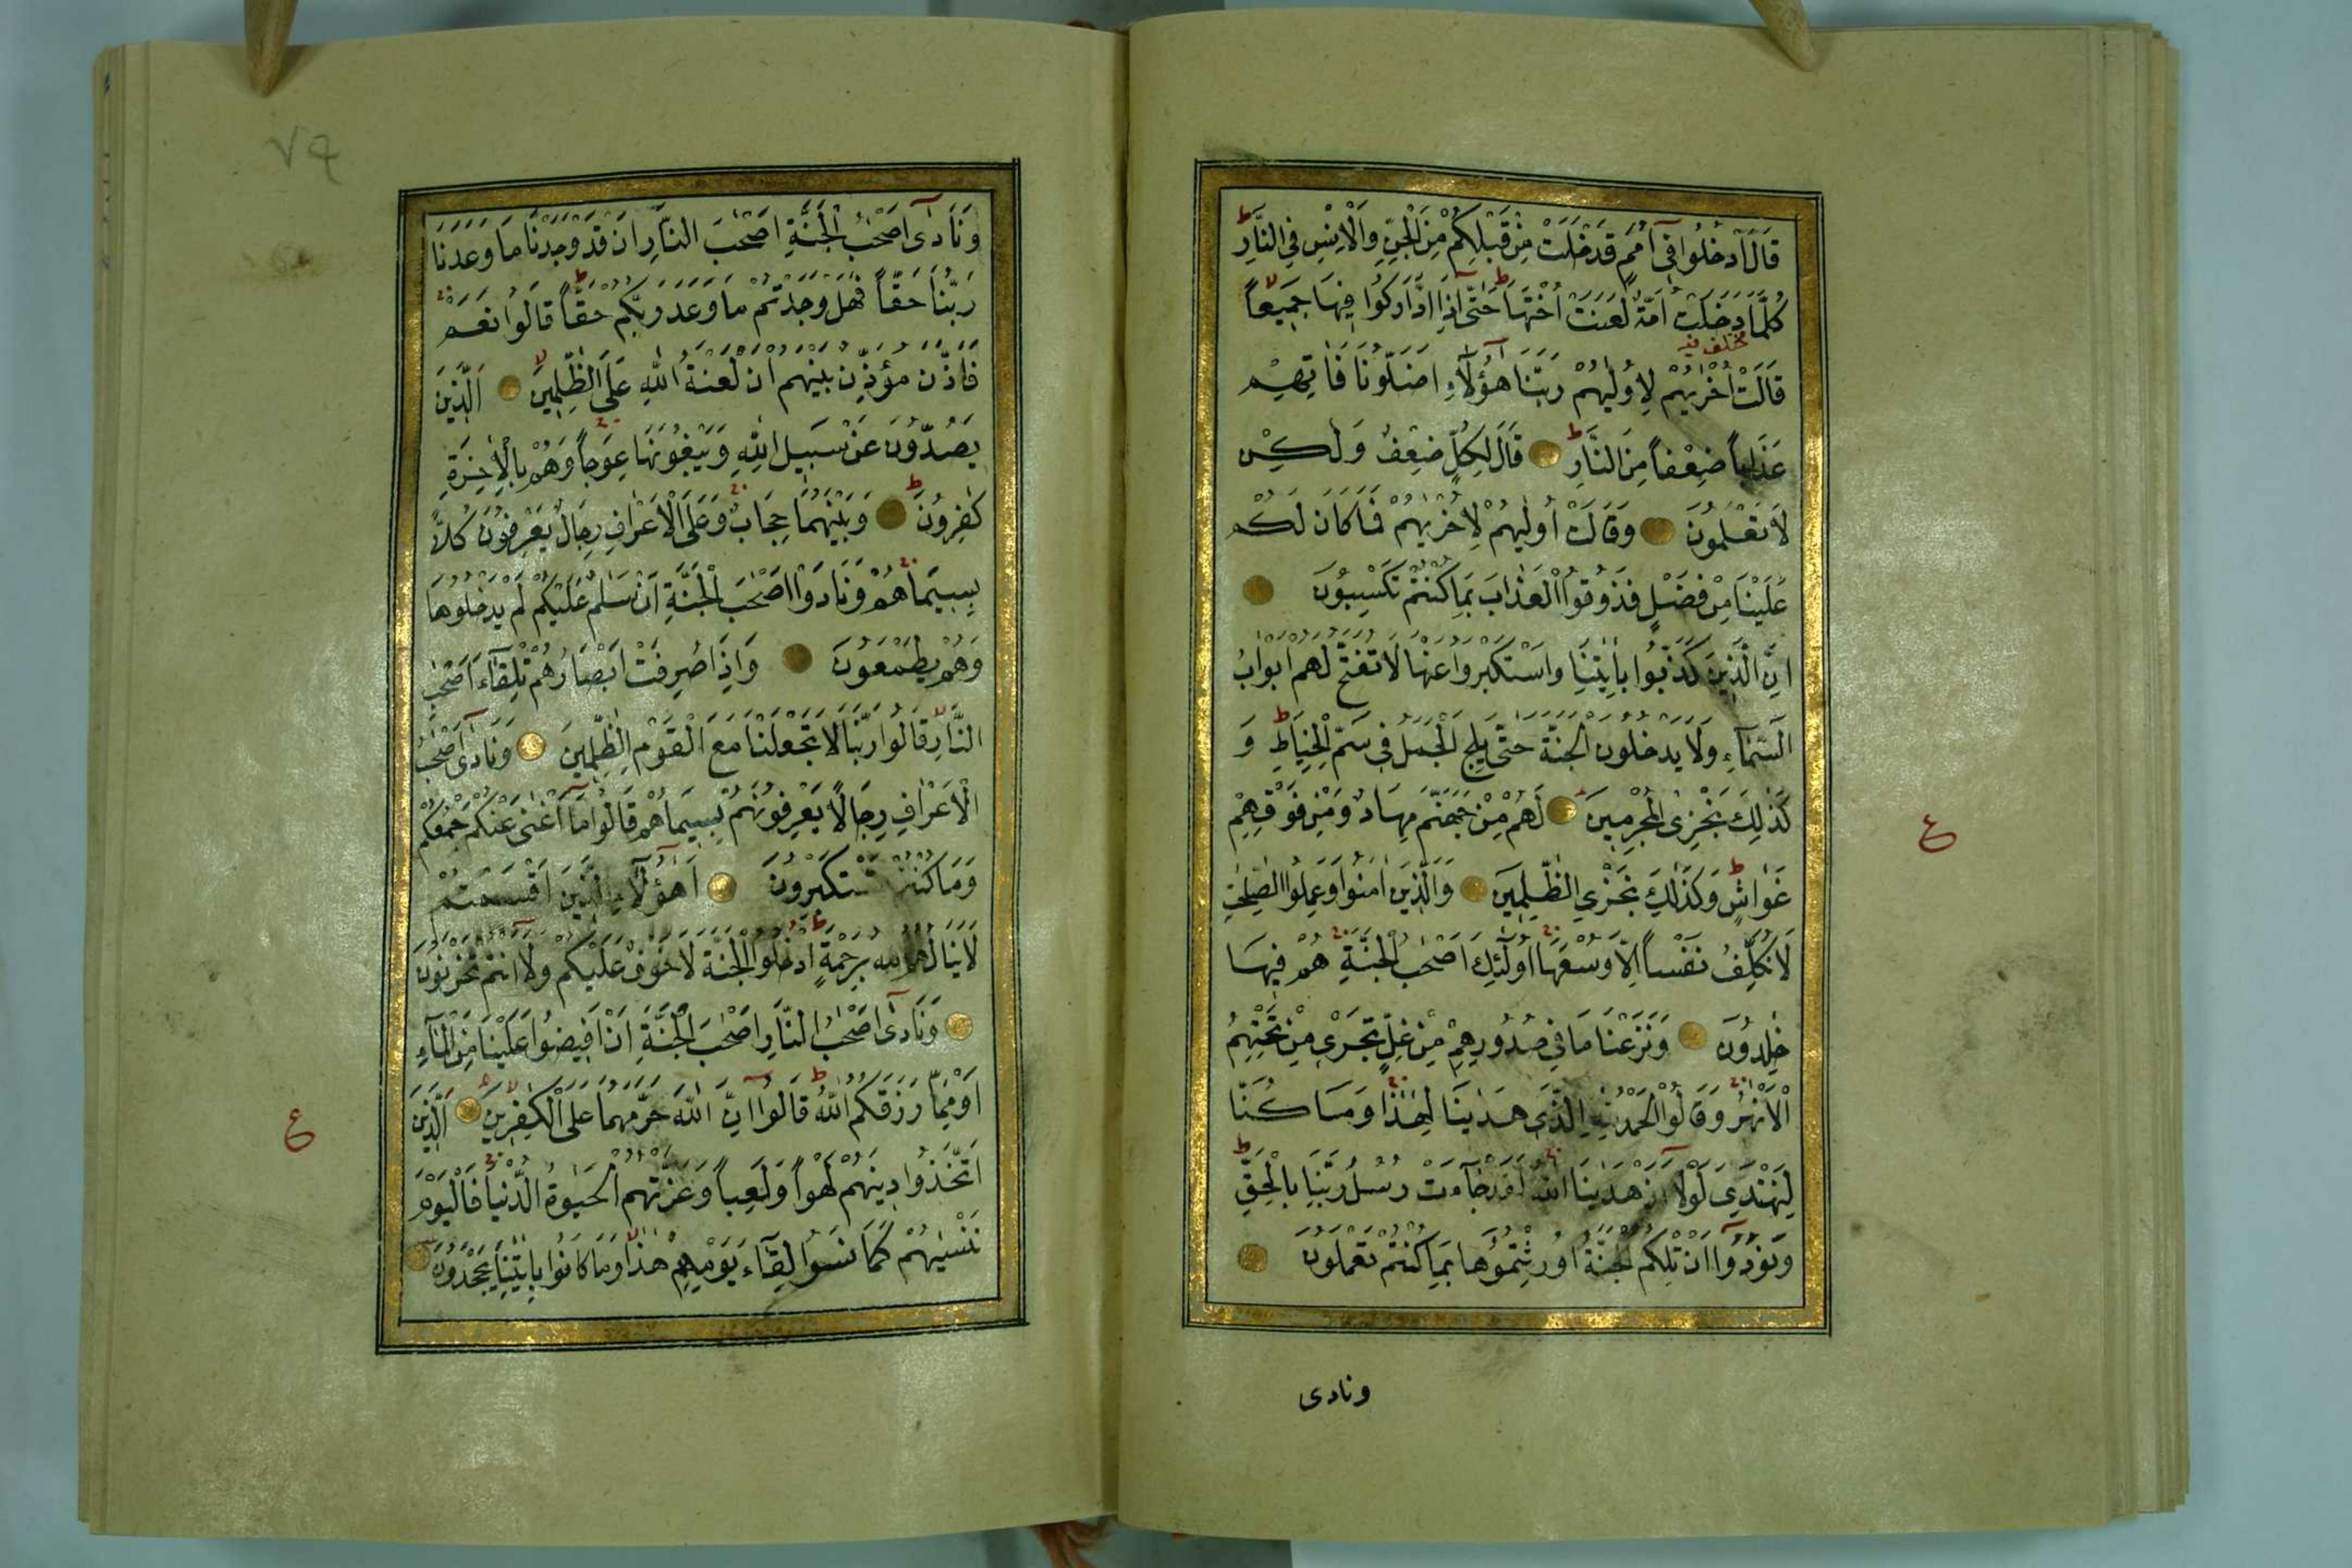 قَالَ ادْخُلُوا فِى اُمَمٍ قَدْ خَلَتْ مِنْ قَبْلِكُمْ مِنَ الْجِنِّ وَالْاِنْسِ فِى النَّارِ ط
كُلَّمَا دَخَلَتْ اُمَّةٌ لَعَنَتْ اُخْتَهَا ط حَتّٰى اِذَا ادَّارَكُوا فِيهَا جَمِيعًا لا
مختلف فيه
قَالَتْ اُخْرٰيهُمْ لِاُولٰيهُمْ رَبَّنَا هٰٓؤُلَٓاءِ اَضَلُّونَا فَاٰتِهِمْ
عَذَابًا ضِعْفًا مِنَ النَّارِ ط قَالَ لِكُلٍّ ضِعْفٌ وَلٰكِنْ
لَا تَعْلَمُونَ وَقَالَتْ اُولٰيهُمْ لِاُخْرٰيهُمْ فَمَا كَانَ لَكُمْ
عَلَيْنَا مِنْ فَضْلٍ فَذُوقُوا الْعَذَابَ بِمَا كُنْتُمْ تَكْسِبُونَ
اِنَّ الَّذِينَ كَذَّبُوا بِاٰيٰتِنَا وَاسْتَكْبَرُوا عَنْهَا لَا تُفَتَّحُ لَهُمْ اَبْوَابُ
السَّمَٓاءِ وَلَا يَدْخُلُونَ الْجَنَّةَ حَتّٰى يَلِجَ الْجَمَلُ فِى سَمِّ الْخِيَاطِ ط وَ
كَذٰلِكَ نَجْزِى الْمُجْرِمِينَ لَهُمْ مِنْ جَهَنَّمَ مِهَادٌ وَمِنْ فَوْقِهِمْ
غَوَاشٍ ط وَكَذٰلِكَ نَجْزِى الظّٰلِمِينَ وَالَّذِينَ اٰمَنُوا وَعَمِلُوا الصّٰلِحٰتِ
لَا نُكَلِّفُ نَفْسًا اِلَّا وُسْعَهَا اُولٰٓئِكَ اَصْحٰبُ الْجَنَّةِ هُمْ فِيهَا
خٰلِدُونَ وَنَزَعْنَا مَا فِى صُدُورِهِمْ مِنْ غِلٍّ تَجْرِى مِنْ تَحْتِهِمُ
الْاَنْهٰرُ وَقَالُوا الْحَمْدُ لِلّٰهِ الَّذِى هَدٰينَا لِهٰذَا وَمَا كُنَّا
لِنَهْتَدِىَ لَوْلَٓا اَنْ هَدٰينَا اللّٰهُ لَقَدْ جَٓاءَتْ رُسُلُ رَبِّنَا بِالْحَقِّ ط
وَنُودُوٓا اَنْ تِلْكُمُ الْجَنَّةُ اُورِثْتُمُوهَا بِمَا كُنْتُمْ تَعْمَلُونَ
ونادى
ع
٧٩
وَنَادٰٓى اَصْحٰبُ الْجَنَّةِ اَصْحٰبَ النَّارِ اَنْ قَدْ وَجَدْنَا مَا وَعَدَنَا
رَبُّنَا حَقًّا فَهَلْ وَجَدْتُمْ مَا وَعَدَ رَبُّكُمْ حَقًّا ط قَالُوا نَعَمْ
فَاَذَّنَ مُؤَذِّنٌ بَيْنَهُمْ اَنْ لَعْنَةُ اللّٰهِ عَلَى الظّٰلِمِينَ لا اَلَّذِينَ
يَصُدُّونَ عَنْ سَبِيلِ اللّٰهِ وَيَبْغُونَهَا عِوَجًا وَهُمْ بِالْاٰخِرَةِ
كٰفِرُونَ ط وَبَيْنَهُمَا حِجَابٌ وَعَلَى الْاَعْرَافِ رِجَالٌ يَعْرِفُونَ كُلًّا
بِسِيمٰيهُمْ وَنَادَوْا اَصْحٰبَ الْجَنَّةِ اَنْ سَلٰمٌ عَلَيْكُمْ لَمْ يَدْخُلُوهَا
وَهُمْ يَطْمَعُونَ وَاِذَا صُرِفَتْ اَبْصَارُهُمْ تِلْقَٓاءَ اَصْحٰبِ
النَّارِ لا قَالُوا رَبَّنَا لَا تَجْعَلْنَا مَعَ الْقَوْمِ الظّٰلِمِينَ وَنَادٰٓى اَصْحٰبُ
الْاَعْرَافِ رِجَالًا يَعْرِفُونَهُمْ بِسِيمٰيهُمْ قَالُوا مَٓا اَغْنٰى عَنْكُمْ جَمْعُكُمْ
وَمَا كُنْتُمْ تَسْتَكْبِرُونَ اَهٰٓؤُلَٓاءِ الَّذِينَ اَقْسَمْتُمْ
لَا يَنَالُهُمُ اللّٰهُ بِرَحْمَةٍ ط اُدْخُلُوا الْجَنَّةَ لَا خَوْفٌ عَلَيْكُمْ وَلَٓا اَنْتُمْ تَحْزَنُونَ
وَنَادٰٓى اَصْحٰبُ النَّارِ اَصْحٰبَ الْجَنَّةِ اَنْ اَفِيضُوا عَلَيْنَا مِنَ الْمَٓاءِ
اَوْ مِمَّا رَزَقَكُمُ اللّٰهُ ط قَالُوٓا اِنَّ اللّٰهَ حَرَّمَهُمَا عَلَى الْكٰفِرِينَ لا اَلَّذِينَ
اتَّخَذُوا دِينَهُمْ لَهْوًا وَلَعِبًا وَغَرَّتْهُمُ الْحَيٰوةُ الدُّنْيَا فَالْيَوْمَ
نَنْسٰيهُمْ كَمَا نَسُوا لِقَٓاءَ يَوْمِهِمْ هٰذَا لا وَمَا كَانُوا بِاٰيٰتِنَا يَجْحَدُونَ
ع